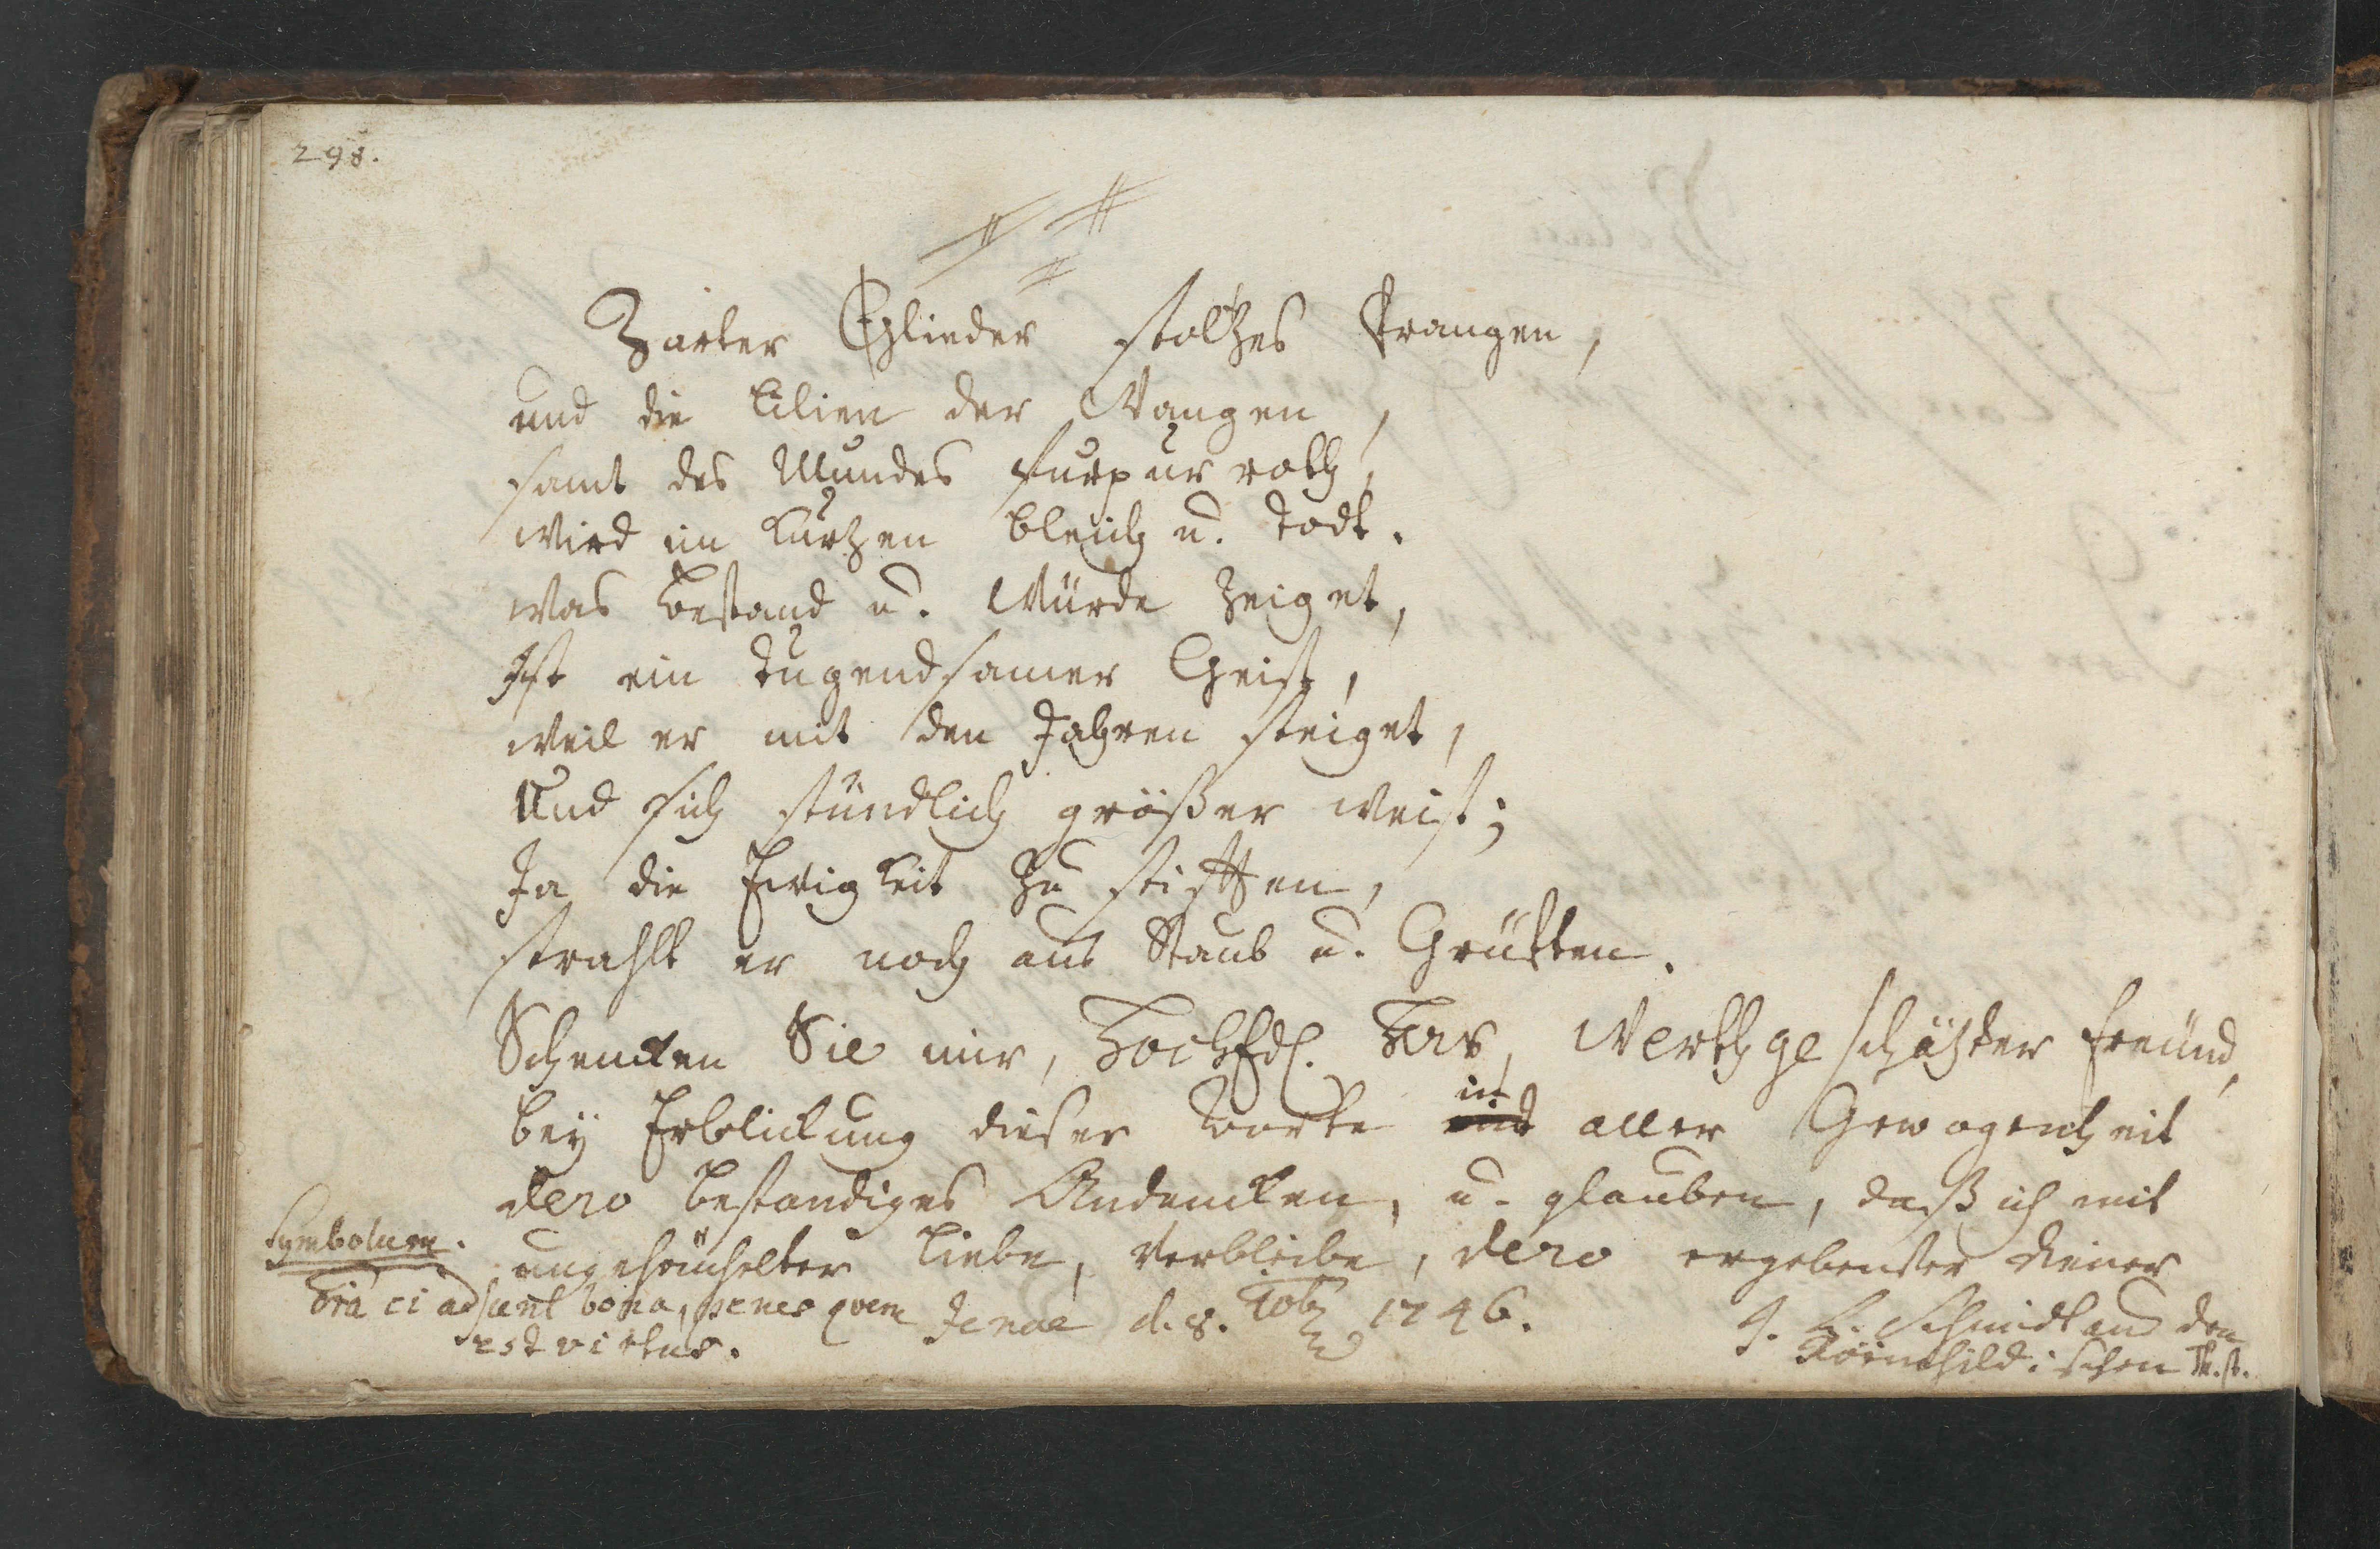 298.
Zarter Glieder stoltzes Prangen,
und die Lilien der Wangen,
samt des Mundes Purpur roth,
wird in Kurtzen bleich u. todt.
was Bestand u. Würde zeiget,
Ist ein tugendsamer Geist,
weil er mit den Jahren steiget,
Und sich stündlich größer weist;
Ja die Ewigkeit zu stifften,
strahlt er noch aus Staub u. Grüfften.
Schencken Sie mir, HochEdl. Herr, Werthgeschätzter Freund,
bey Erblickung dieser Worte in aller Gewogenheit
dero beständiges Andencken, u. glauben, daß ich mit
ungeheuchelter Liebe, verbleibe, dero ergebenster Diener
Symbolum.
Oīa ei adsunt bona, penes qvem
est virtus.
Jenae d. 8. 1746.
J. L. Schmidt aus den
Römhildischen Th. st.